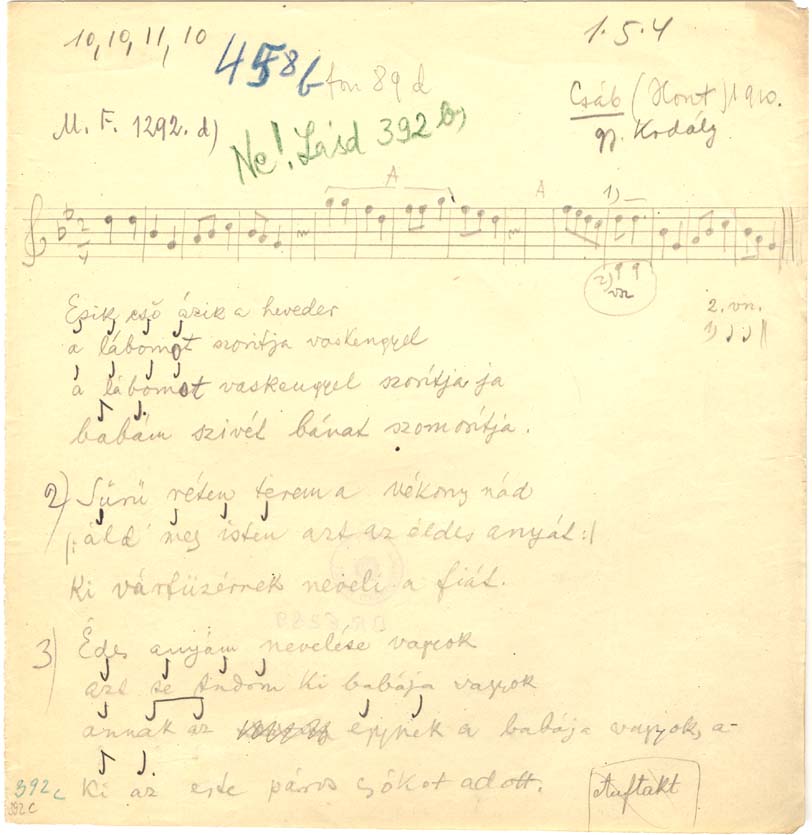 10, 10, 11, 10
1. 5. 4
458b
fon 89 d
Csáb (Hont) 1910.
gy. Kodály
M. F. 1292. d)
Ne! Lásd 392 b)
A
A
1)
2)
vn
2. vn.
1)
Esik eső ázik a heveder
a lábomot szorítja vaskengyel
a lábomot vaskengyel szorítja ja
babám szivét bánat szomorítja.
2) Sűrü réten terem a vékony nád
|: áld meg isten azt az éldes anyát :|
Ki vártüzérnek neveli a fiát.
3) Édes anyám nevelése vagyok
azt se tudom ki babája vagyok
annak az egynek a babája vagyok, a-
Ki az este páros csókot adott.
Auftakt
392 c
392 C